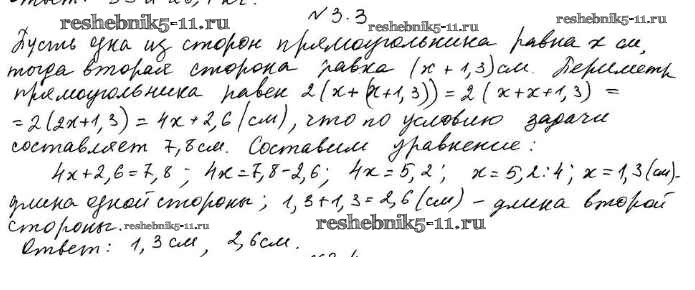 №3.3
reshebnik5-11.ru
Пусть одна из сторон прямоугольника равна x см,
тогда вторая сторона равна (x + 1,3) см. Периметр
reshebnik5-11.ru
прямоугольника равен 2(x+(x+1,3)) = 2(x+x+1,3) =
= 2(2x+1,3) = 4x+2,6 (см), что по условию задачи
составляет 7,8 см. Составим уравнение:
4x+2,6=7,8; 4x=7,8-2,6; 4x=5,2; x=5,2:4; x=1,3(см)-
длина одной стороны; 1,3+1,3=2,6(см) – длина второй
стороны. reshebnik5-11.ru reshebnik5-11.ru
Ответ: 1,3 см, 2,6 см.